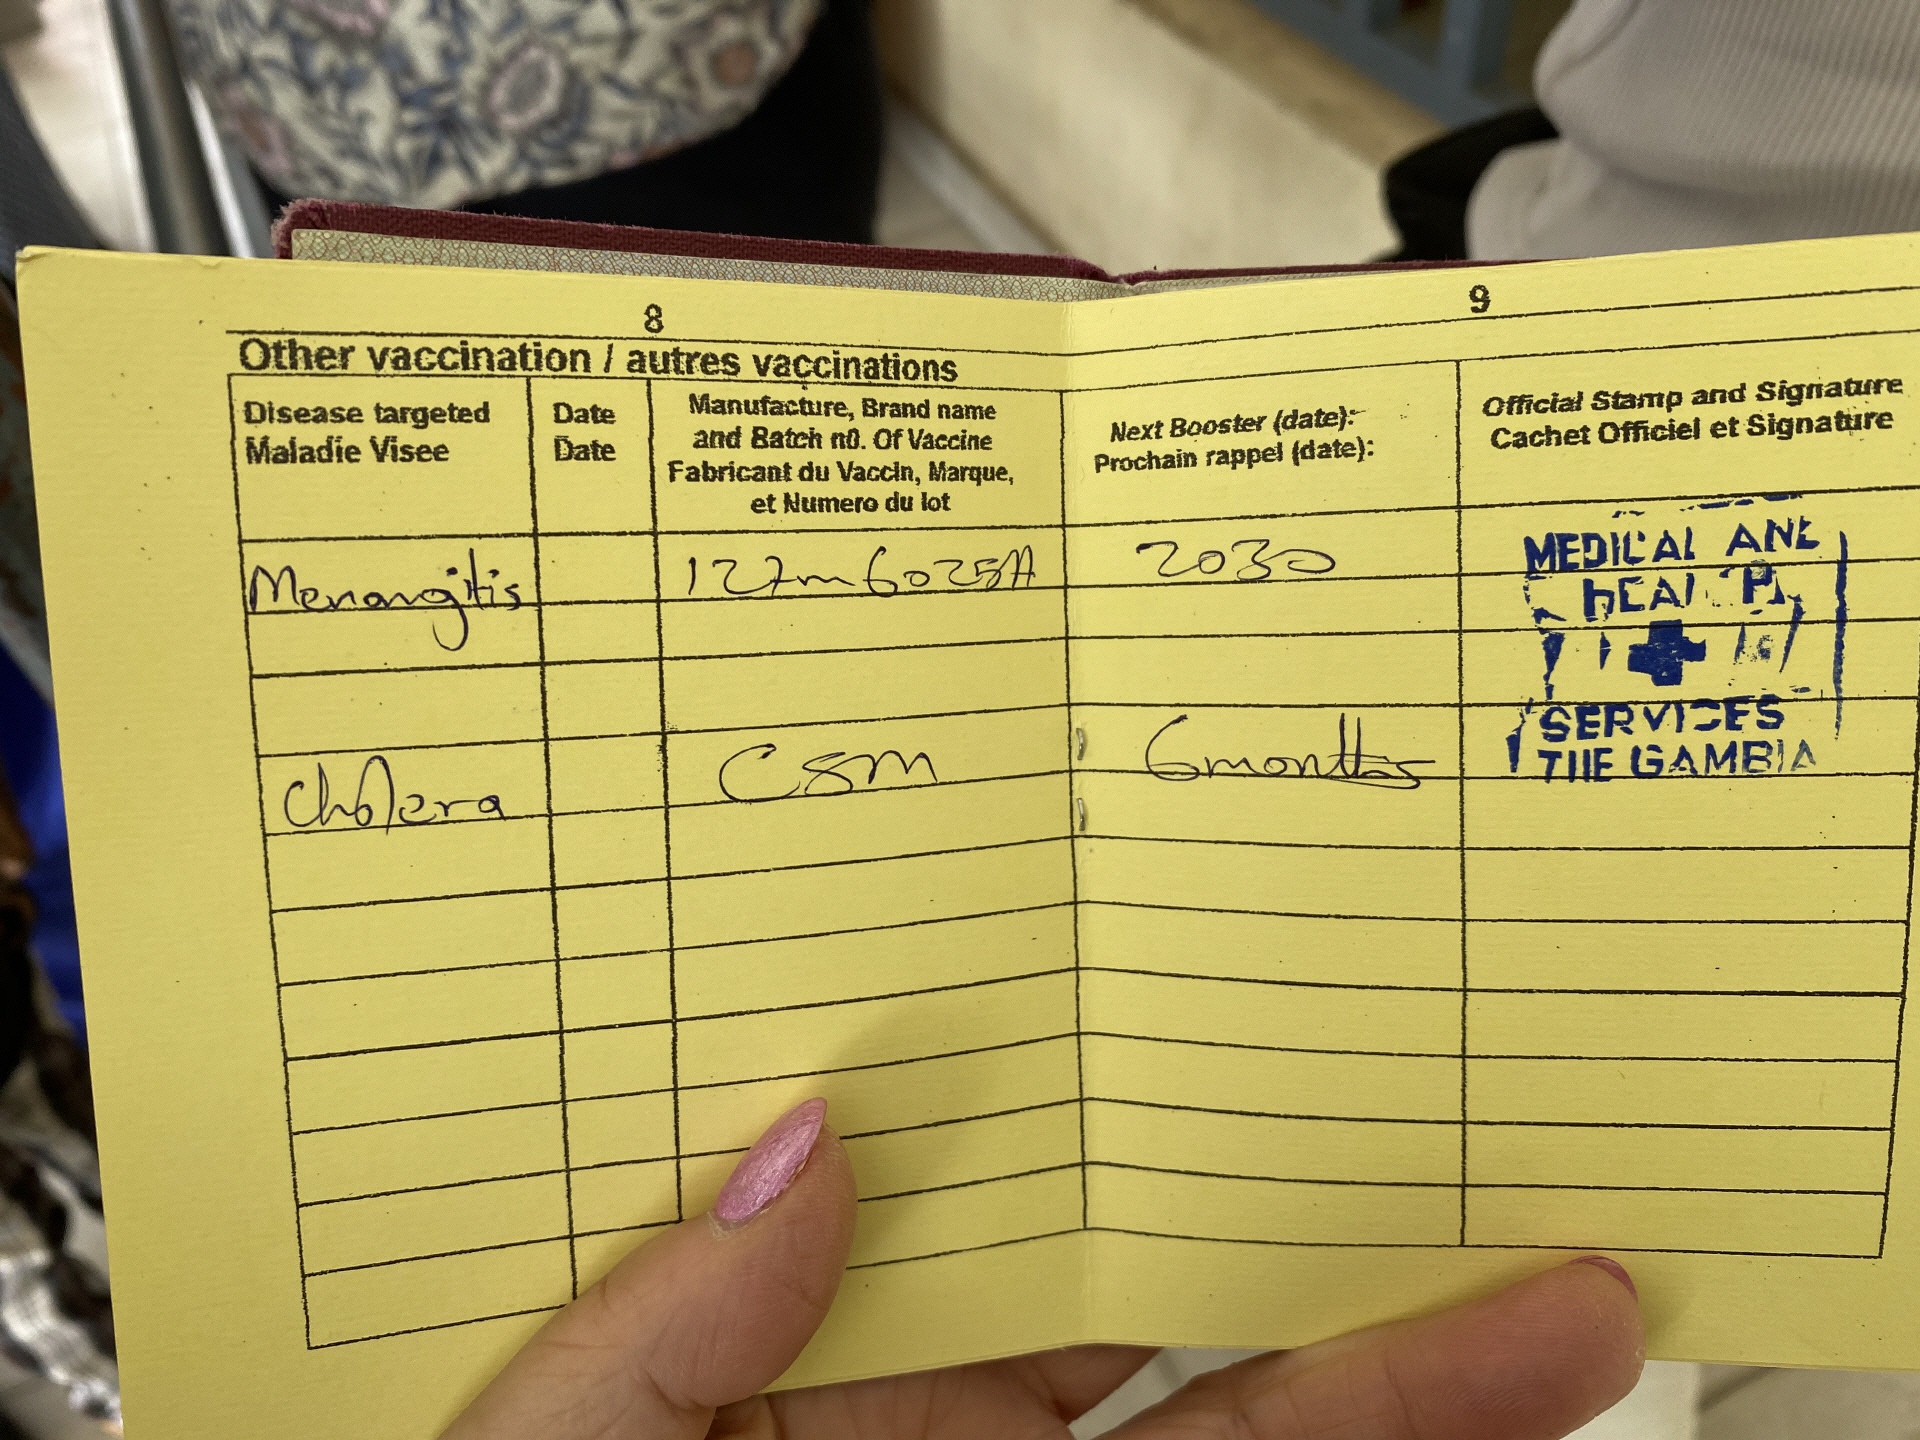 8
9
Other vaccination / autres vaccinations
Disease targeted
Maladie Visee
Date
Date
Manufacture, Brand name
and Batch n0. Of Vaccine
Fabricant du Vaccin, Marque,
et Numero du lot
Next Booster (date):
Prochain rappel (date):
Official Stamp and Signature
Cachet Officiel et Signature
Menangitis
127m6025A
2030
MEDICAL AND
HEALTH
SERVICES
THE GAMBIA
Cholera
CSM
6months